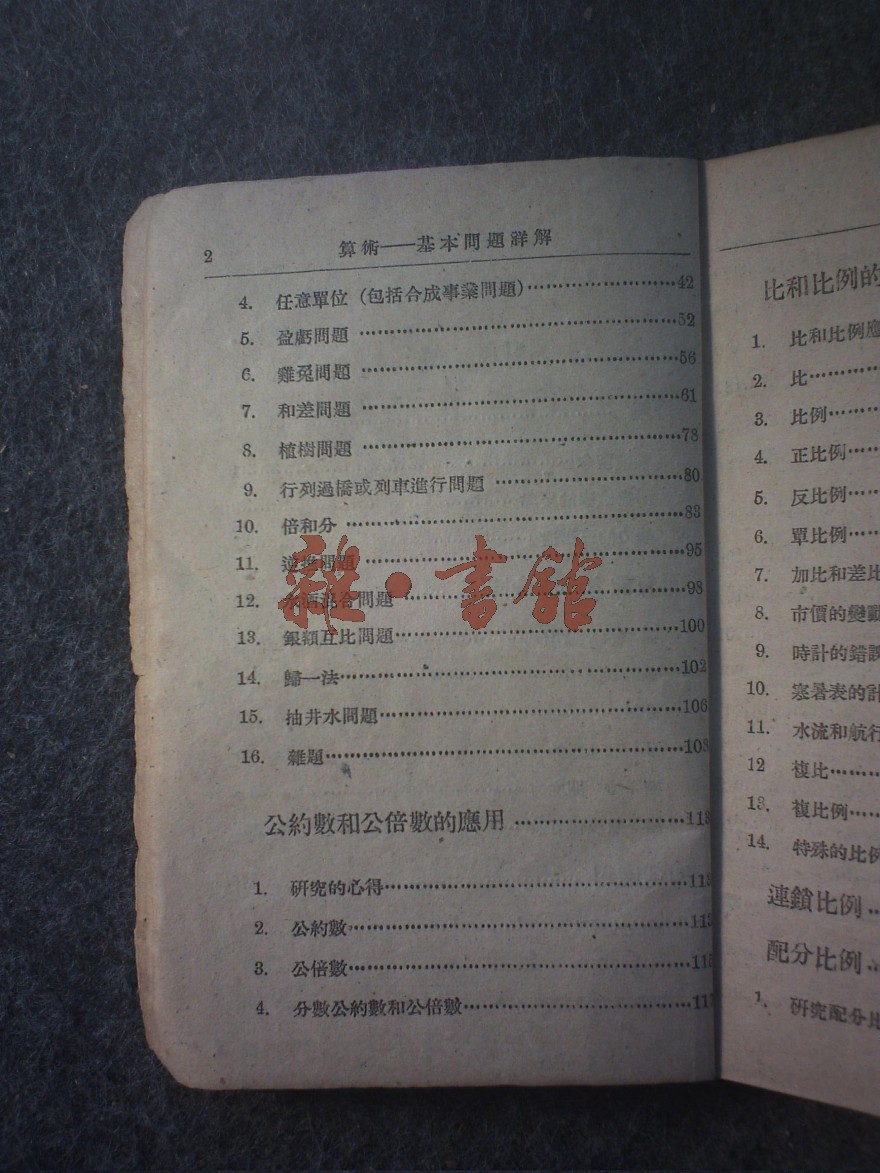 2 算術——基本問題詳解
4. 任意單位（包括合成事業問題）……42
5. 盈虧問題……52
6. 雞兔問題……56
7. 和差問題……61
8. 植樹問題……78
9. 行列過橋或列車進行問題……80
10. 倍和分……83
11. 問題……95
12. 水酒混合問題……98
13. 銀額互比問題……100
14. 歸一法……102
15. 抽井水問題……106
16. 雜題……108
公約數和公倍數的應用……113
1. 研究的心得……113
2. 公約數……113
3. 公倍數……115
4. 分數公約數和公倍數……117
雜·書館
比和比例的
1. 比和比例應
2. 比……
3. 比例……
4. 正比例……
5. 反比例……
6. 單比例……
7. 加比和差比
8. 市價的變
9. 時計的錯誤
10. 寒暑表的計
11. 水流和航行
12 複比……
13. 複比例……
14. 特殊的比例
連鎖比例……
配分比例……
1. 研究配分比